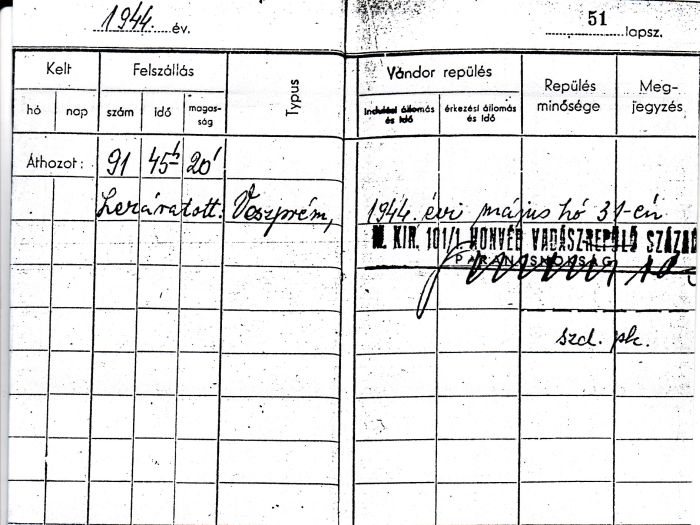 1944. év.
51 lapsz.
Kelt
Felszállás
Typus
Vándor repülés
Repülés minősége
Megjegyzés
hó
nap
szám
idő
magasság
Indulási állomás és idő
érkezési állomás és idő
Áthozot: 91 45h 20'
Lezáratott: Veszprém, 1944. évi május hó 31-én
M. KIR. 101/1. HONVÉD VADÁSZREPÜLŐ SZÁZAD
PARANCSNOKSÁG
szd. pk.